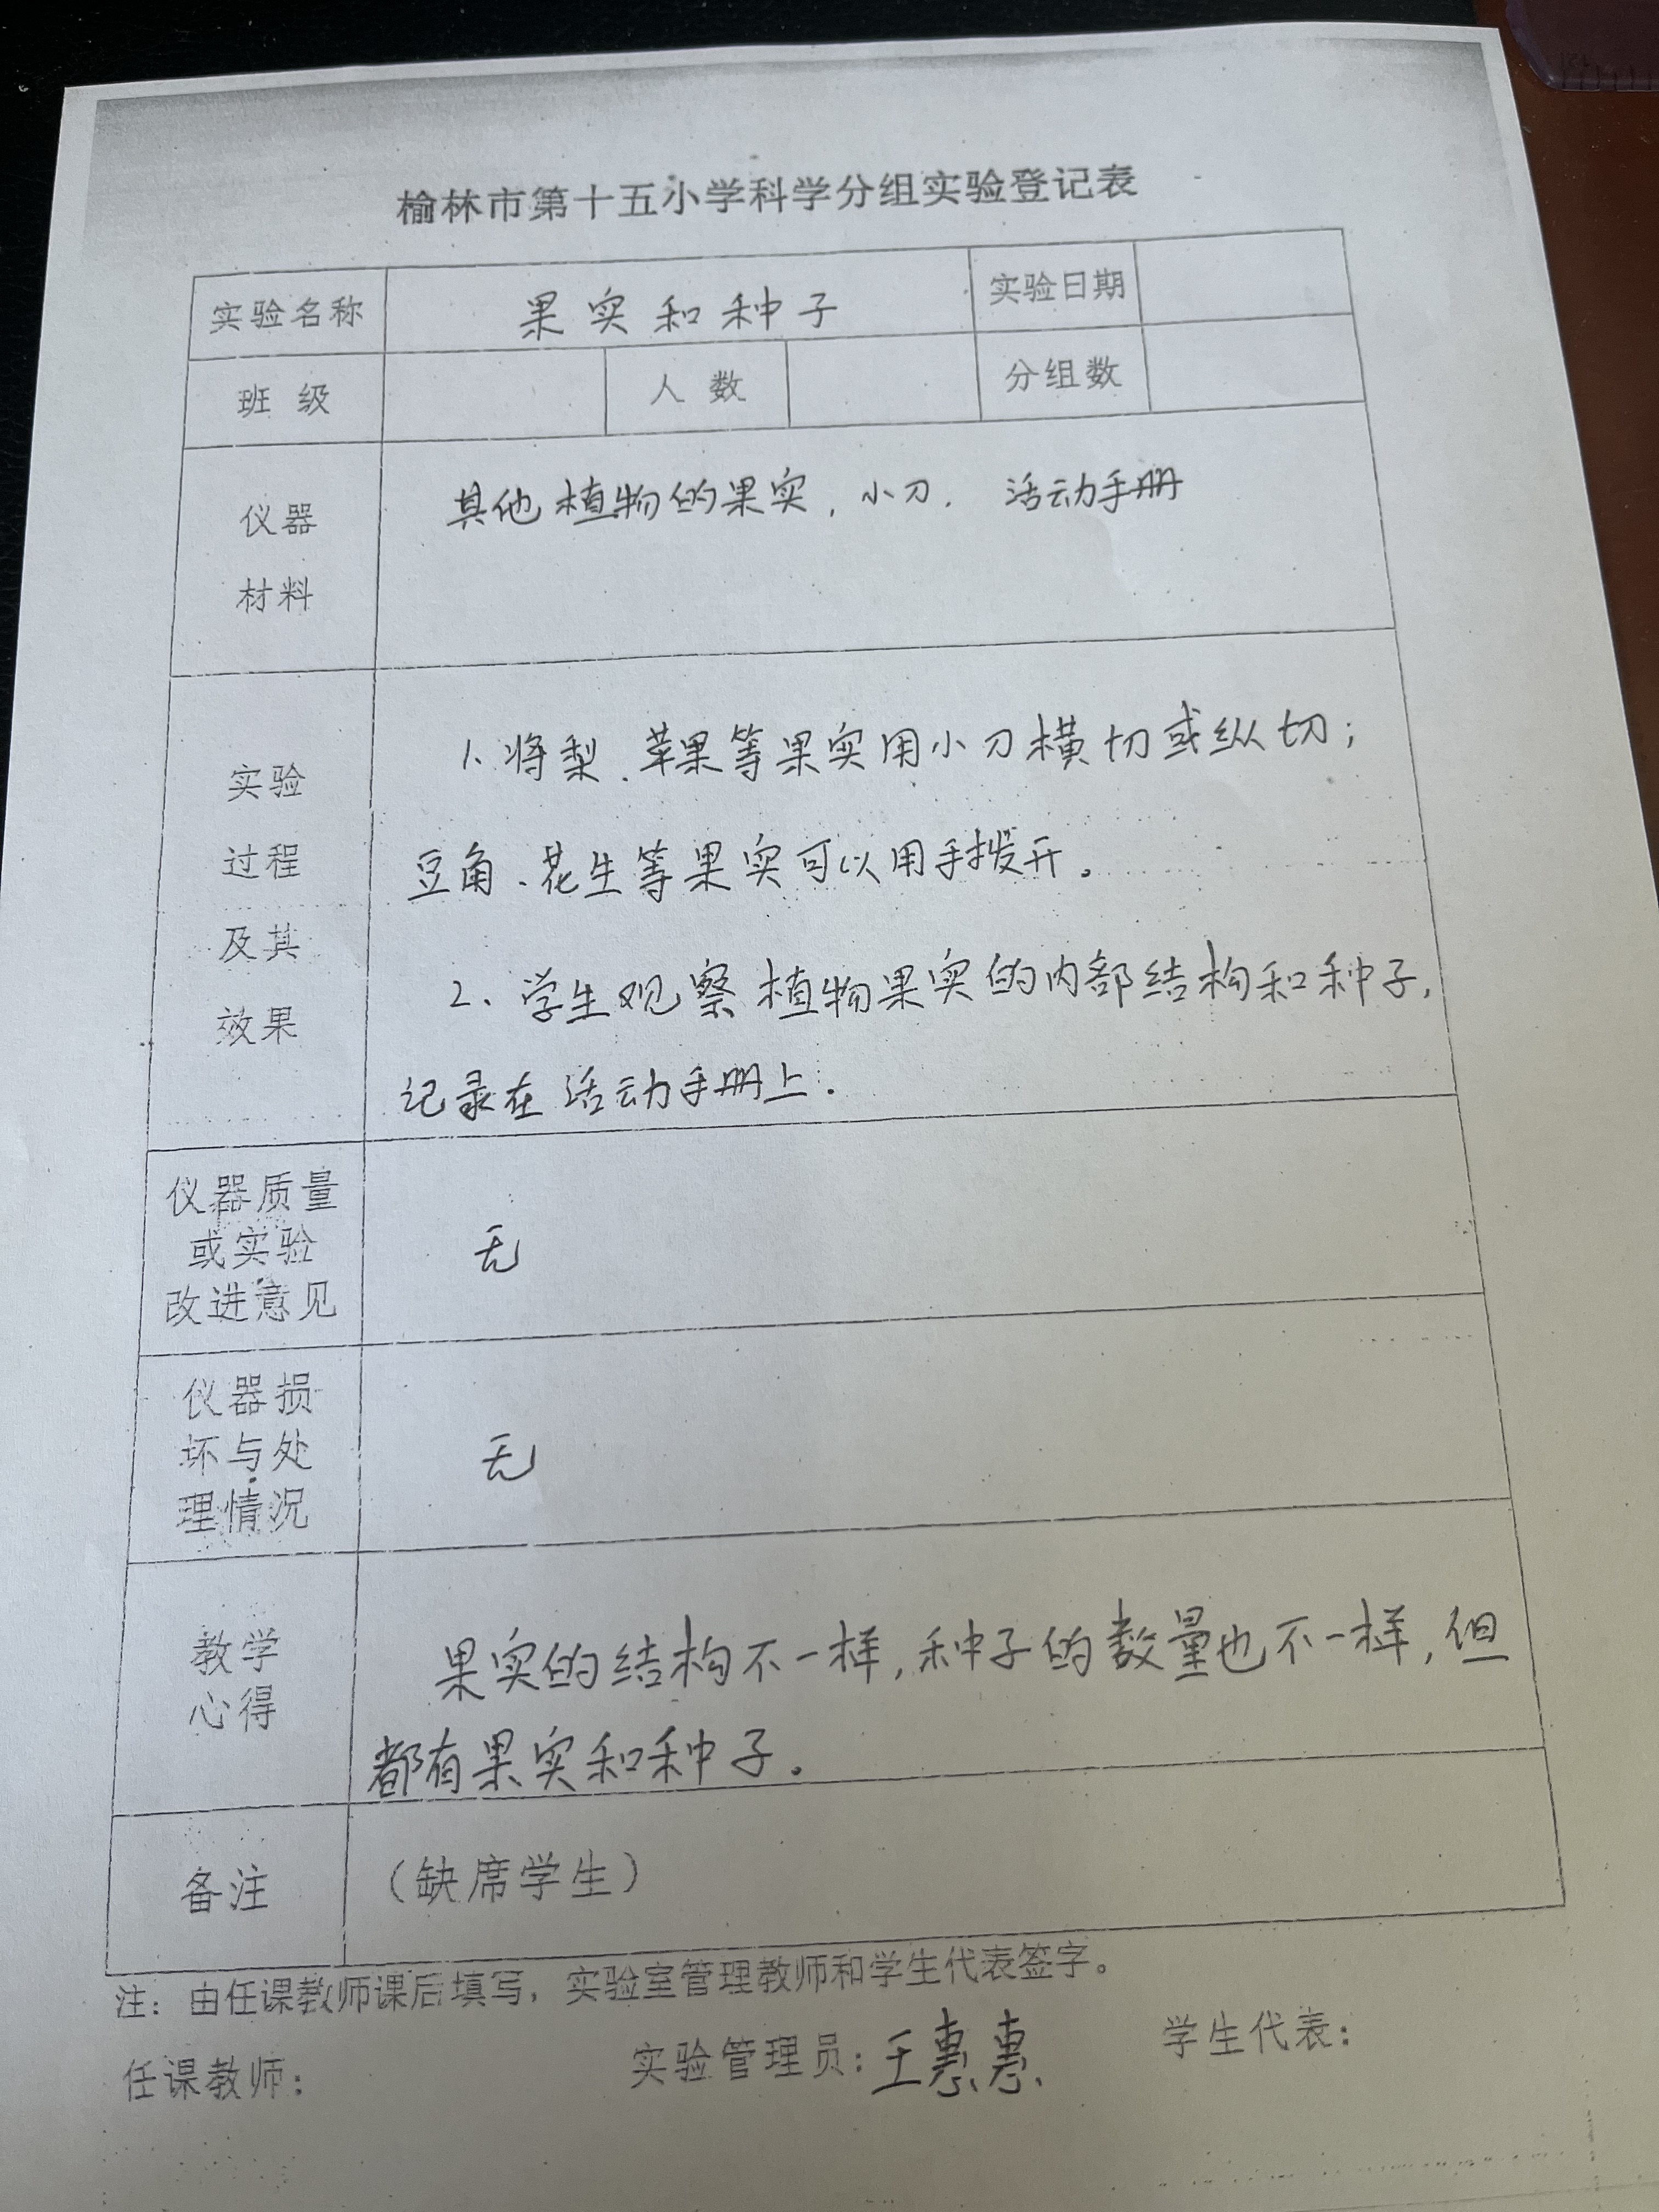 榆林市第十五小学科学分组实验登记表
实验名称 果实和种子 实验日期
班 级 人 数 分组数
仪器
材料
其他植物的果实，小刀， 活动手册
实验
过程
及其
效果
1、将梨、苹果等果实用小刀横切或纵切；
豆角、花生等果实可以用手拨开。
2、学生观察植物果实的内部结构和种子，
记录在活动手册上．
仪器质量
或实验
改进意见
无
仪器损
坏与处
理情况
无
教学
心得
果实的结构不一样，种子的数量也不一样，但
都有果实和种子。
备注 （缺席学生）
注：由任课教师课后填写，实验室管理教师和学生代表签字。
任课教师： 实验管理员：王惠惠 学生代表：